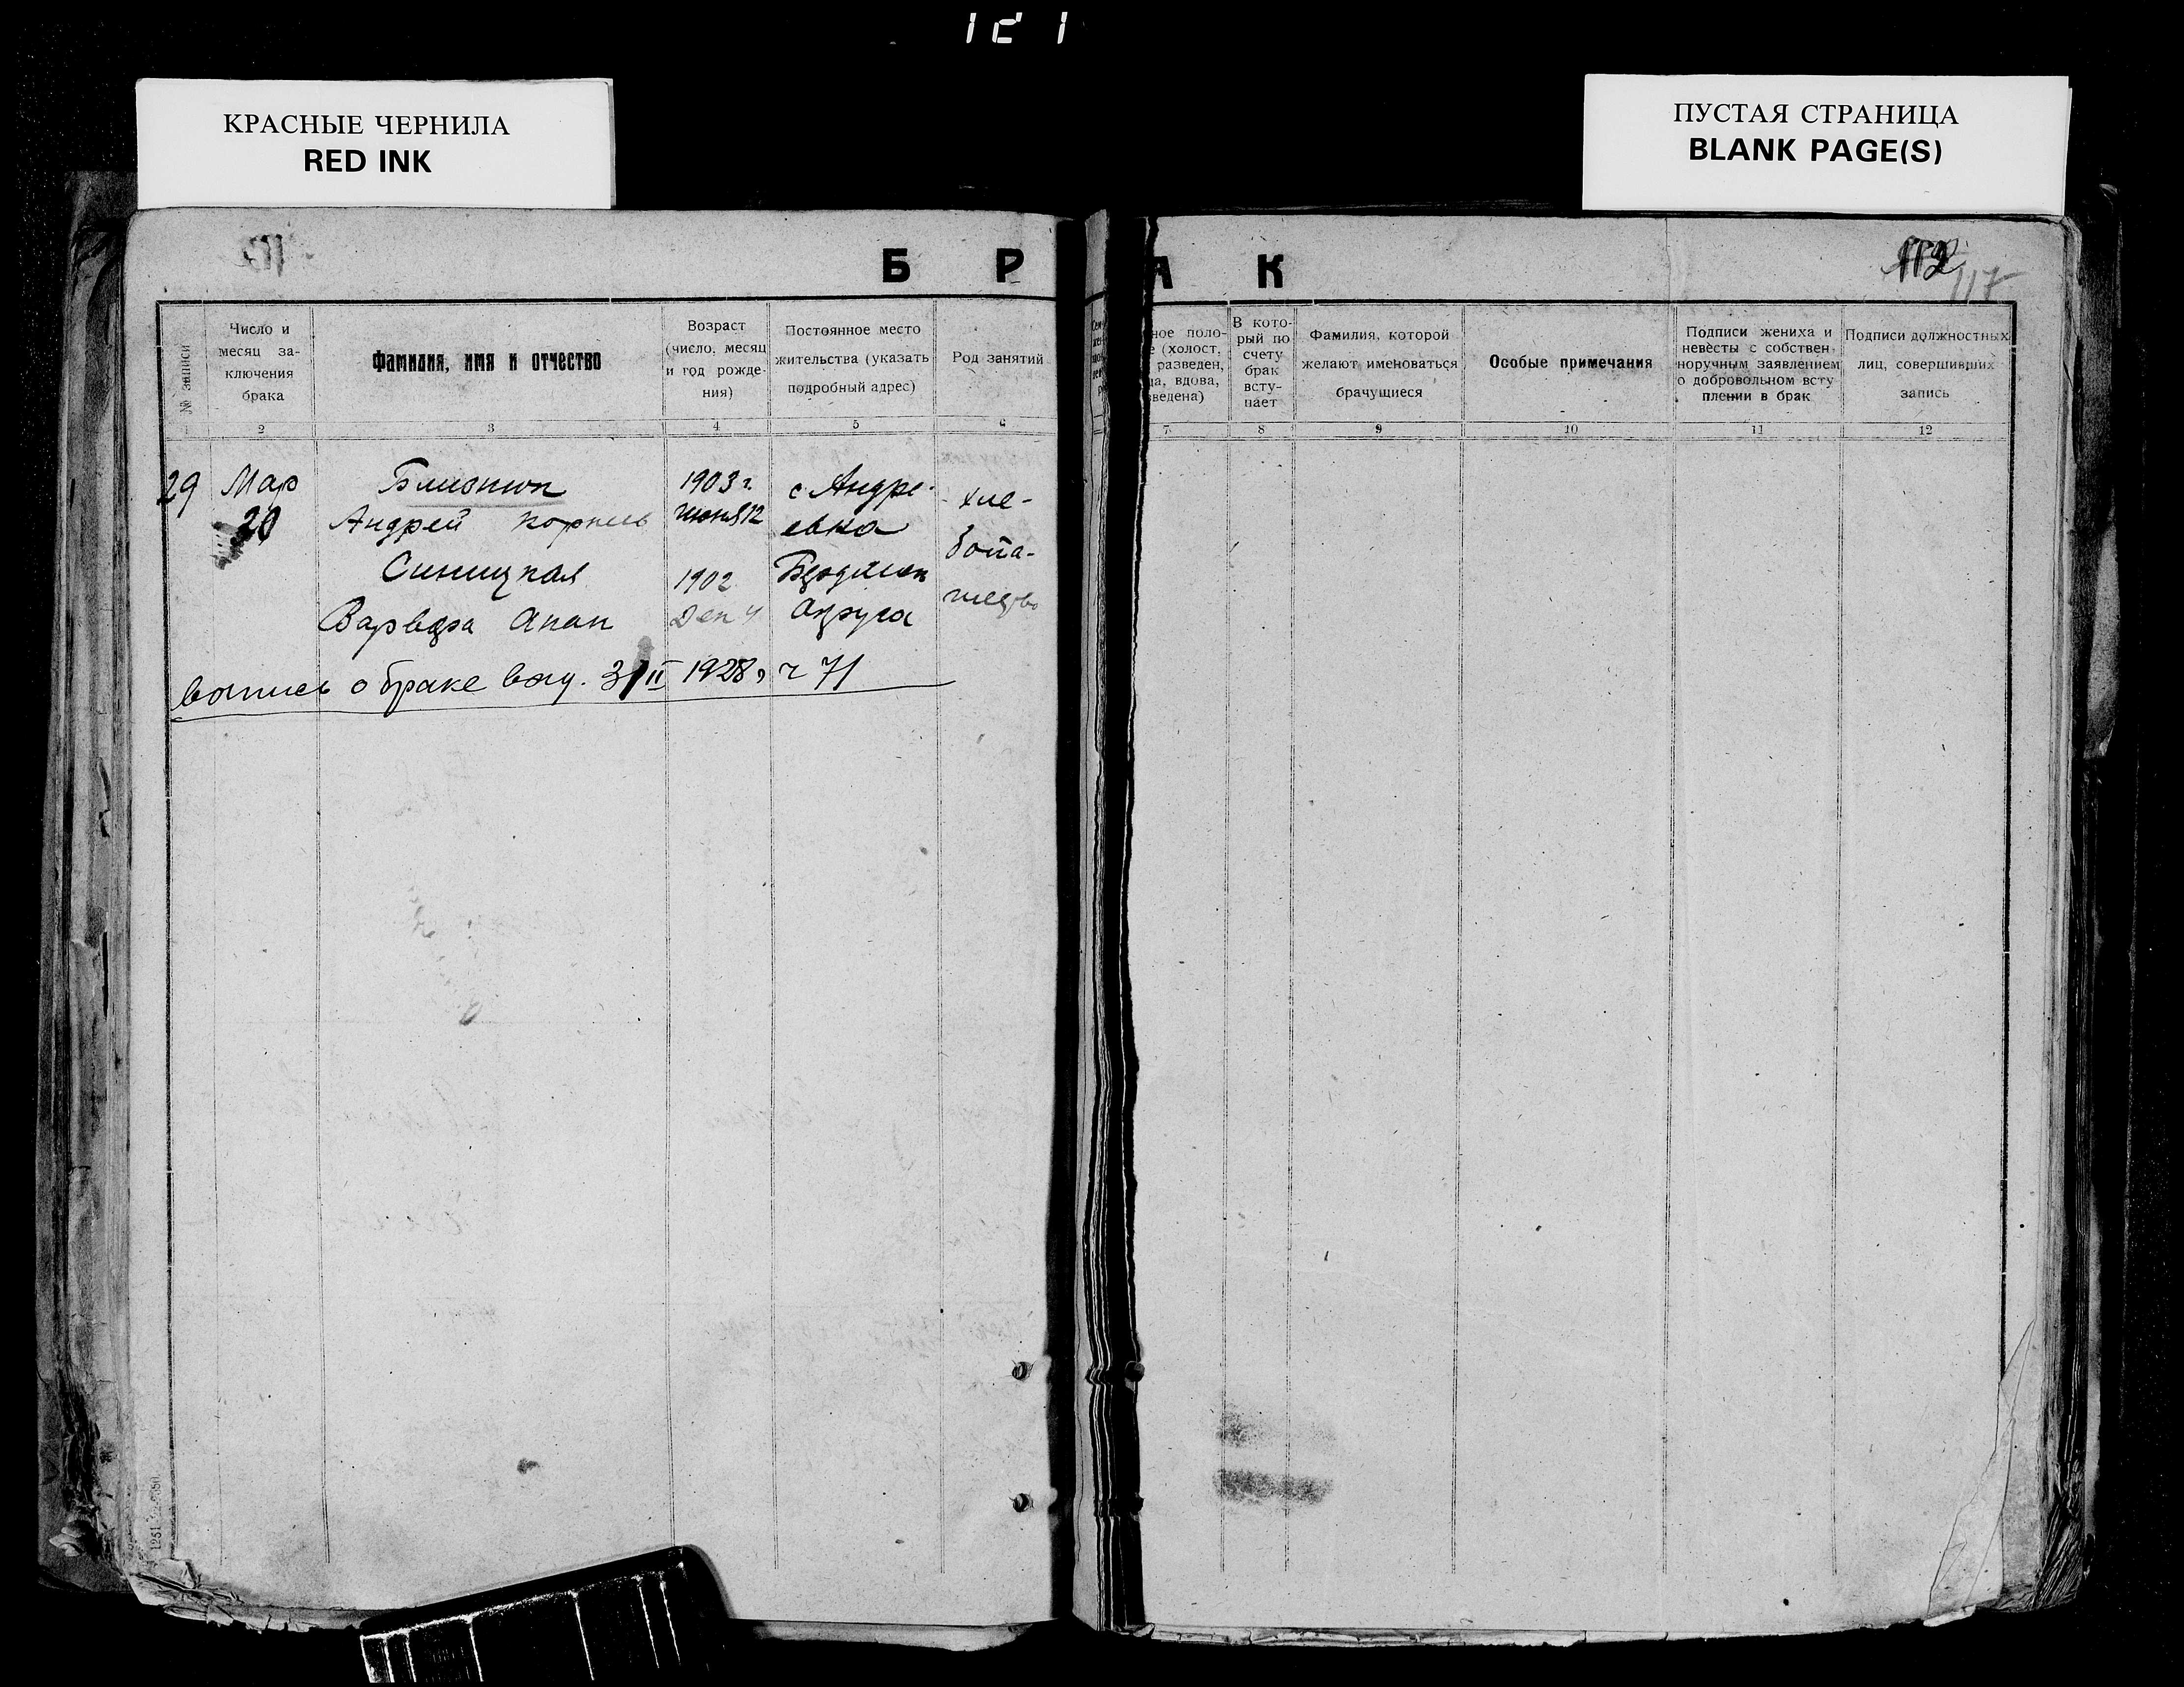 121
КРАСНЫЕ ЧЕРНИЛА
RED INK
ПУСТАЯ СТРАНИЦА
BLANK PAGE(S)
Б Р А К
112
117
№ записи
Число и
месяц за-
ключения
брака
Фамилия, имя и отчество
Возраст
(число, месяц
и год рожде-
ния)
Постоянное место
жительства (указать
подробный адрес)
Род занятий
ное поло-
е (холост,
разведен,
ца, вдова,
зведена)
В кото-
рый по
счету
брак
всту-
пает
Фамилия, которой
желают именоваться
брачущиеся
Особые примечания
Подписи жениха и
невесты с собствен-
норучным заявлением
о добровольном всту
плении в брак
Подписи должностных
лиц, совершивших
запись
2 3 4 5 6 7 8 9 10 11 12
29 Мар Близнюк 1903 г. с Андре- хле-
20 Андрей Корнеев июня 12 евка
Синицкая 1902 Бердянск бопа-
Варвара Анан Дек 4 Округа шество
выпись о браке выд. 3/II 1928 г 71